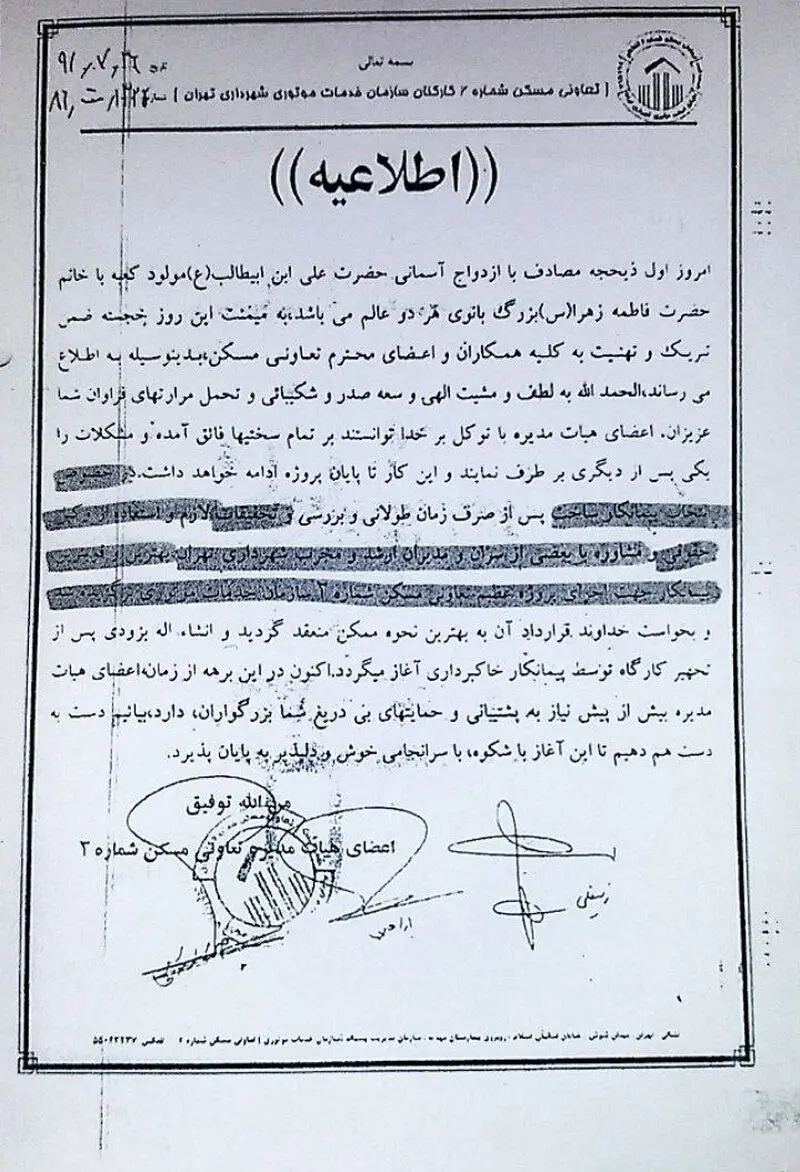 بسمه تعالی
تعاونی مسکن شماره ۲ کارکنان سازمان خدمات موتوری شهرداری تهران
((اطلاعیه))
امروز اول ذیحجه مصادف با ازدواج آسمانی حضرت علی ابن ابیطالب(ع)مولود کعبه با خانم
حضرت فاطمه زهرا(س)بزرگ بانوی هر دو عالم می باشد،به میمنت این روز خجسته ضمن
تبریک و تهنیت به کلیه همکاران و اعضای محترم تعاونی مسکن،بدینوسیله به اطلاع
می رساند،الحمد الله به لطف و مشیت الهی و سعه صدر و شکیبائی و تحمل مرارتهای فراوان شما
عزیزان. اعضای هیات مدیره با توکل بر خدا توانستند بر تمام سختیها فائق آمده و مشکلات را
یکی پس از دیگری بر طرف نمایند و این کار تا پایان پروژه ادامه خواهد داشت.در خصوص
انتخاب پیمانکار ساخت پس از صرف زمان طولانی و بررسی و تحقیقات لازم و استفاده از
حقوقی و مشاوره با بعضی از سران و مدیران ارشد و مجرب شهرداری تهران بهترین و
پیمانکار جهت اجرای پروژه عظیم تعاونی مسکن شماره ۲ سازمان خدمات موتوری برگزیده شد
و بخواست خداوند قرارداد آن به بهترین نحوه ممکن منعقد گردید و انشاء اله بزودی پس از
تجهیز کارگاه توسط پیمانکار خاکبرداری آغاز میگردد.اکنون در این برهه از زمان،اعضای هیات
مدیره بیش از پیش نیاز به پشتیبانی و حمایتهای بی دریغ شما بزرگواران، دارد،بیائیم دست به
دست هم دهیم تا این آغاز با شکوه، با سرانجامی خوش و دلپذیر به پایان پذیرد.
من الله توفیق
اعضای هیات مدیره تعاونی مسکن شماره ۲
نشانی تهران، میدان شوش، خیابان فدائیان اسلام، روبروی بیمارستان سازمان مدیریت سازمان خدمات موتوری تعاونی مسکن شماره ۲